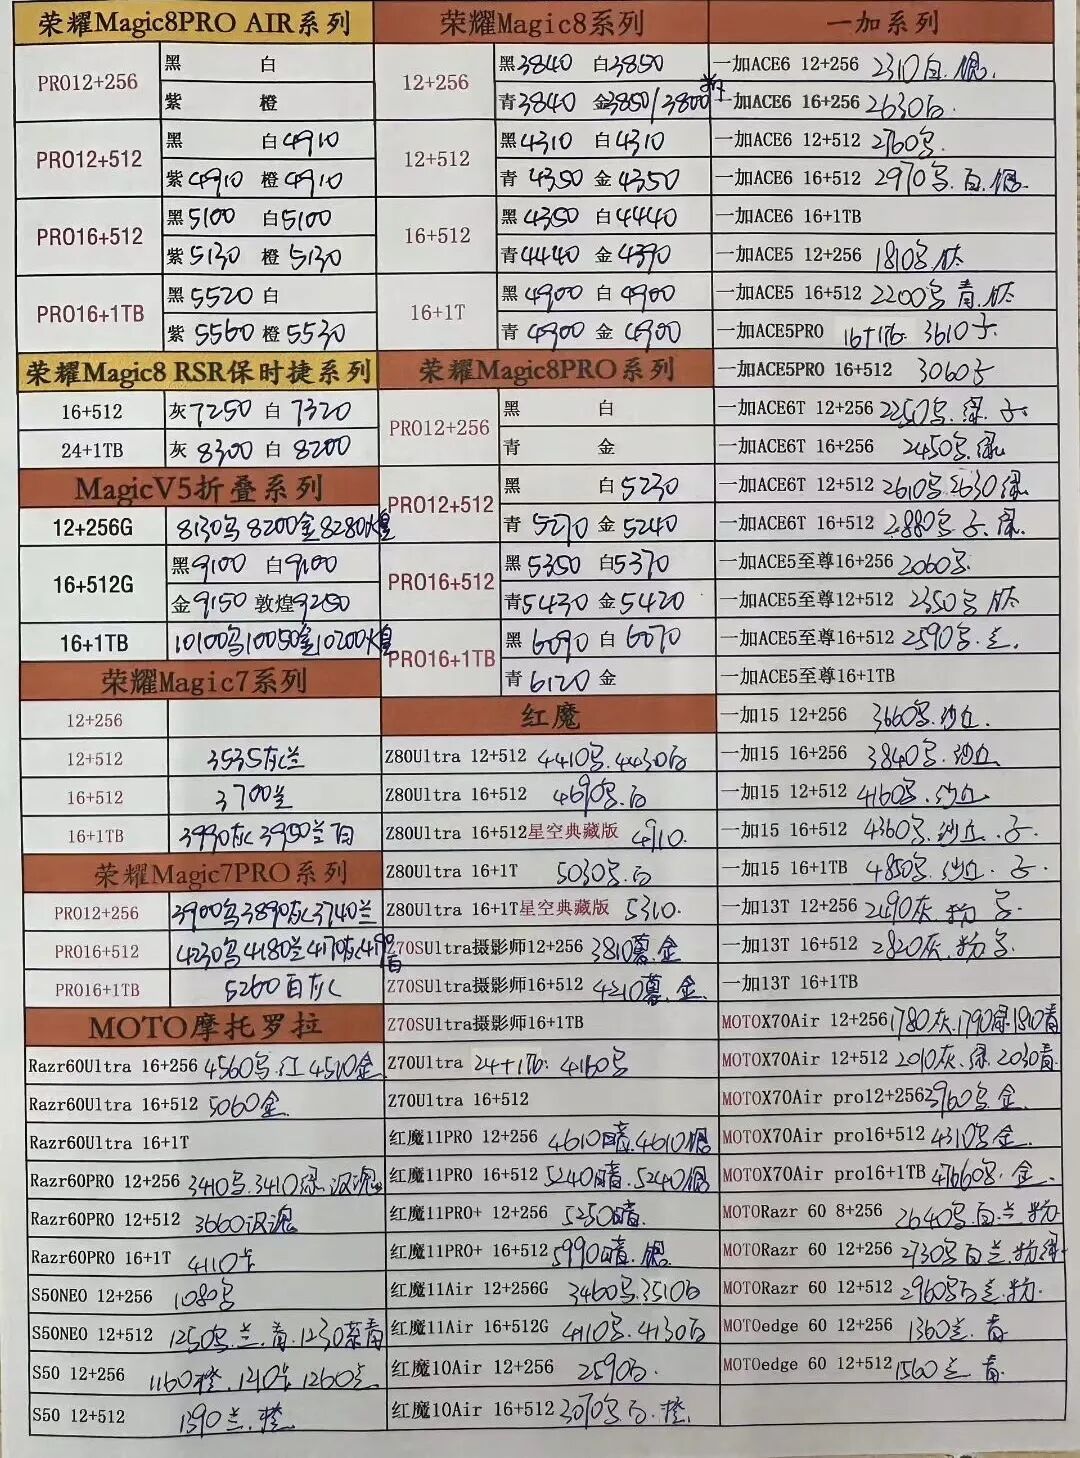 荣耀Magic8PRO AIR系列
PRO12+256
黑 白
紫 橙
PRO12+512
黑 白4910
紫4910 橙4910
PRO16+512
黑5100 白5100
紫5130 橙5130
PRO16+1TB
黑5520 白
紫5560 橙5530
荣耀Magic8 RSR保时捷系列
16+512 灰7250 白7320
24+1TB 灰8300 白8200
MagicV5折叠系列
12+256G 8130 8200金8280
16+512G
黑9100 白9100
金9150 敦煌9250
16+1TB 10100 10050金10200
荣耀Magic7系列
12+256
12+512 3535灰兰
16+512 3700兰
16+1TB 3990灰 3950兰白
荣耀Magic7PRO系列
PRO12+256 3890灰3740兰
PRO16+512 4230 4180兰4170灰
PRO16+1TB 5260白灰
MOTO摩托罗拉
Razr60Ultra 16+256 4560 红 4510金
Razr60Ultra 16+512 5060金
Razr60Ultra 16+1T
Razr60PRO 12+256 3410 3410绿
Razr60PRO 12+512 3660
Razr60PRO 16+1T 4110卡
S50NEO 12+256 1080
S50NEO 12+512 1250 兰.青.1230
S50 12+256 1160橙. 1260兰
S50 12+512 1390兰.橙
荣耀Magic8系列
12+256
黑3840 白3850
青3840 金3850/3800
12+512
黑4310 白4310
青4350 金4350
16+512
黑4350 白4440
青4440 金4390
16+1T
黑4900 白4900
青4900 金4900
荣耀Magic8PRO系列
PRO12+256
黑 白
青 金
PRO12+512
黑 白5230
青5270 金5240
PRO16+512
黑5350 白5370
青5430 金5420
PRO16+1TB
黑6090 白6070
青6120 金
红魔
Z80Ultra 12+512 4410 .4430白
Z80Ultra 16+512 4690 .白
Z80Ultra 16+512星空典藏版 4910.
Z80Ultra 16+1T 5030 .白
Z80Ultra 16+1T星空典藏版 5310.
Z70SUltra摄影师12+256 3810 .金
Z70SUltra摄影师16+512 4210 .金
Z70SUltra摄影师16+1TB
Z70Ultra 24+1TB: 4160
Z70Ultra 16+512
红魔11PRO 12+256 4610暗.4610银
红魔11PRO 16+512 5240暗.5240银
红魔11PRO+ 12+256 5250暗.
红魔11PRO+ 16+512 5990暗.银
红魔11Air 12+256G 3460 .3510白
红魔11Air 16+512G 4110 .4130白
红魔10Air 12+256 2590白.
红魔10Air 16+512 3070 .白.橙
一加系列
一加ACE6 12+256 2310白.银.
一加ACE6 16+256 2630白.
一加ACE6 12+512 2760 .
一加ACE6 16+512 2970 .白.银.
一加ACE6 16+1TB
一加ACE5 12+256 1810 .钛
一加ACE5 16+512 2200 青.钛
一加ACE5PRO 16+1TB 3610
一加ACE5PRO 16+512 3060
一加ACE6T 12+256 2250 .绿.
一加ACE6T 16+256 2450 .绿
一加ACE6T 12+512 2610 .2630绿
一加ACE6T 16+512 2880 .绿.
一加ACE5至尊16+256 2060
一加ACE5至尊12+512 2350 钛
一加ACE5至尊16+512 2590 .
一加ACE5至尊16+1TB
一加15 12+256 3660 .沙丘.
一加15 16+256 3840 .沙丘
一加15 12+512 4160 .沙丘
一加15 16+512 4360 .沙丘.
一加15 16+1TB 4850 .沙丘.
一加13T 12+256 2490灰.粉
一加13T 16+512 2820灰.粉
一加13T 16+1TB
MOTOX70Air 12+256 1780灰.1790绿1810青
MOTOX70Air 12+512 2010灰.绿.2030青
MOTOX70Air pro12+256 3960 .金.
MOTOX70Air pro16+512 4310 金.
MOTOX70Air pro16+1TB .金.
MOTORazr 60 8+256 2640 .白.兰.粉
MOTORazr 60 12+256 2730 白.兰.粉绿
MOTORazr 60 12+512 2960 白.兰.粉.
MOTOedge 60 12+256 1360兰.青
MOTOedge 60 12+512 1560兰 青